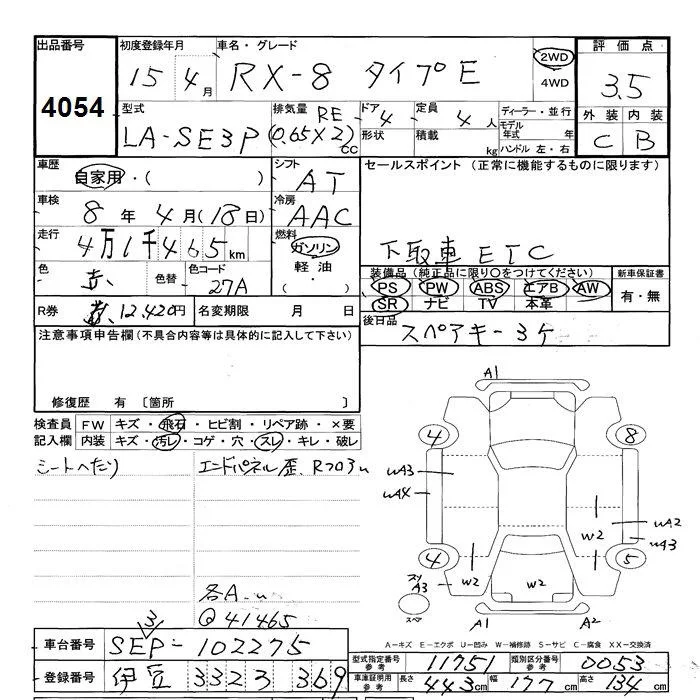 出品番号
4054
初度登録年月
15 4月
車名・グレード
RX-8 タイプE
2WD
4WD
評価点
3.5
外装 内装
C B
型式
LA-SE3P
排気量 RE
(0.65×2)cc
ドア 4
形状
定員 4人
積載 kg
ディーラー・並行
モデル年式 年
ハンドル 左・右
車歴
自家用・( )
シフト
AT
セールスポイント (正常に機能するものに限ります)
車検
8年4月(18日)
冷房
AAC
走行
4万1千465km
燃料
ガソリン
軽油
・
( )
下取車 ETC
色
赤
色替
色コード
27A
装備品(純正品に限り○をつけてください)
PS PW ABS エアB AW
SR ナビ TV 本革
新車保証書
有・無
R券 12,420円
名変期限 月 日
後日品
スペアキー3ケ
注意事項申告欄(不具合内容等は具体的に記入して下さい)
修復歴 有〔箇所 〕
検査員
記入欄
FW キズ・飛石・ヒビ割・リペア跡・×要
内装 キズ・汚レ・コゲ・穴・スレ・キレ・破レ
シートへたり
エンドパネル歪、Rフロアu
各A-u
@41465
A1
4
8
uA3
uA4
W2
uA2
uA3
4
5
スリ
A3
W2
W2
スペア
A1
A2
A-キズ E-エクボ U-凹み W-補修跡 S-サビ C-腐食 XX-交換済
車台番号
3
SEP-102275
登録番号
伊豆 332 3 369
型式指定番号 参考
11751
類別区分番号 参考
0053
車庫証明用 参考
長さ 443cm
幅 177cm
高さ 134cm